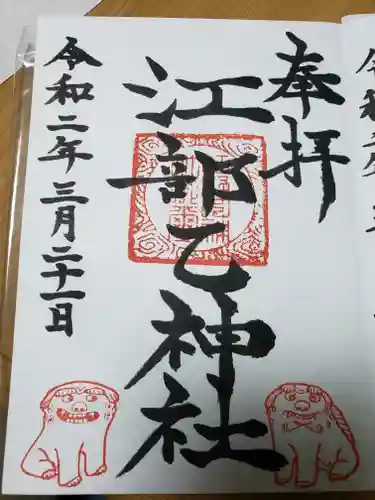 奉拝
江部乙神社
令和二年三月二十一日